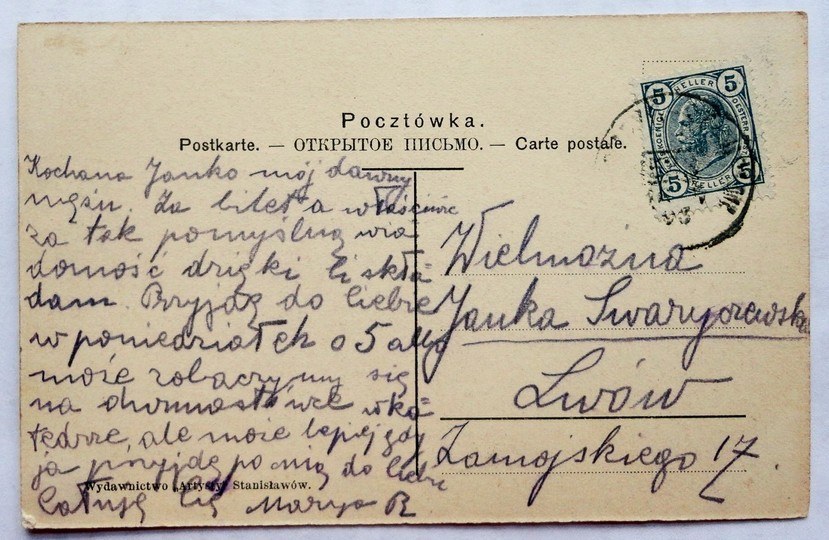 Pocztówka.
Postkarte. — ОТКРЫТОЕ ПИСЬМО. — Carte postale.
5 HELLER 5
5 HELLER 5
Kochana Janko mój dawny
mężu. Za bilet a właściwie
za tak pomyślną wia
domość dzięki Ci skła=
dam. Przyjdę do Ciebie
w poniedziałek o 5 albo
może zobaczymy się
na dwunastówce w ka=
tedrze, ale może lepiej gdy
ja przyjdę po nią do Ciebie
Całuję Cię Marya R
Wielmożna
Janka Swaryczewska
Lwów
Zamojskiego 17.
Wydawnictwo „Artysty” Stanisławów.